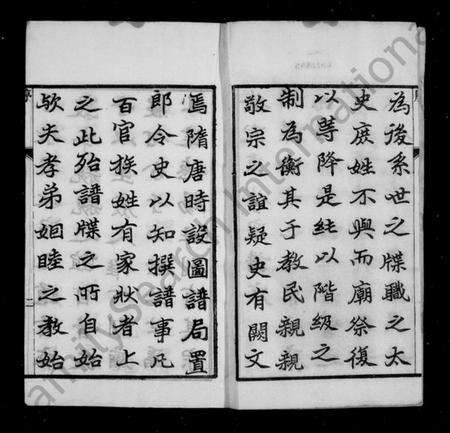 為後系世之牒職之太
史庶姓不與而廟祭復
以等降是純以階級之
制為衡其于教民親親
敬宗之誼疑史有闕文
焉隋唐時設圖譜局置
郎令史以知撰譜事凡
百官族姓有家狀者上
之此殆譜牒之所自始
歟夫孝弟婣睦之教始